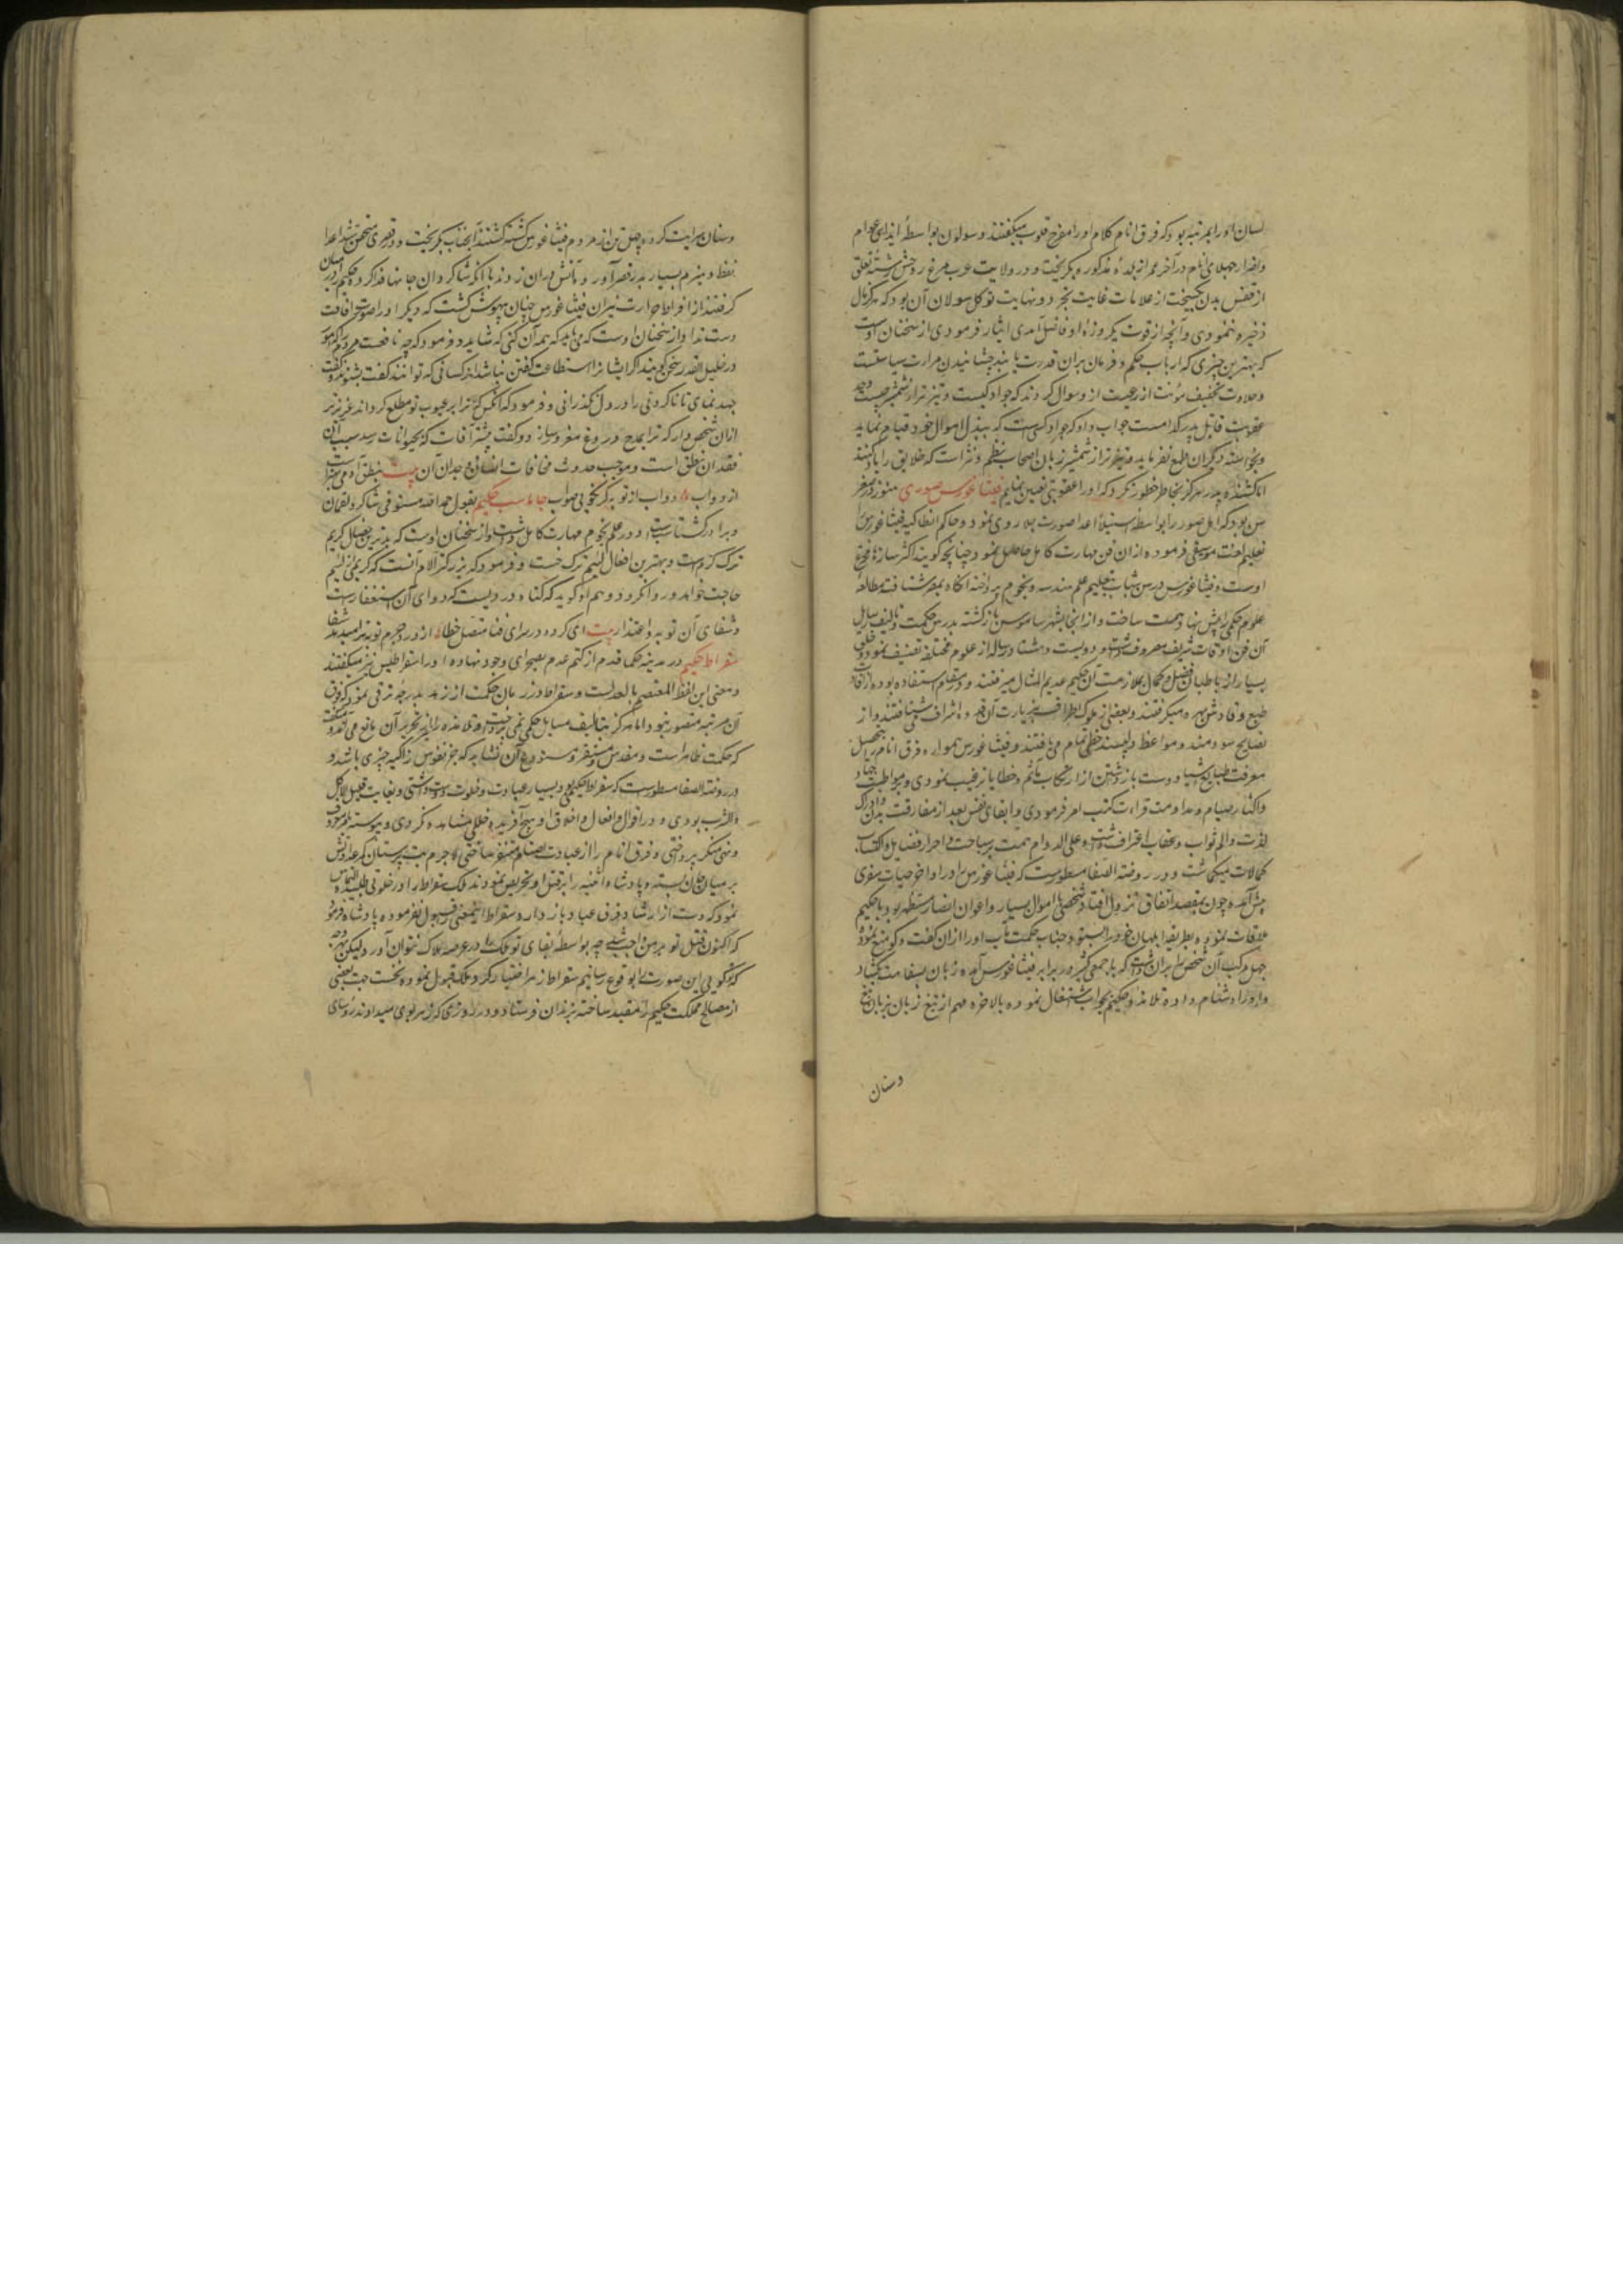 لسان اورا بمرتبه بود که فرق انام کلام اورا مفرح قلوب میگفتند و سولون بواسطهٔ ایذای عوام
واضرار جهلای انام در آخر عمر از بلدهٔ مذکوره بگریخت و در ولایت غرب مرغ روحش رشتهٔ تعلق
از قفس بدن بگسیخت از علامات غایت تجرد و نهایت توکل سولان آن بود که هرگز مال
ذخیره ننمودی و آنچه از قوت یکروزهٔ او فاضل آمدی ایثار فرمودی از سخنان اوست
که بهترین چیزی که ارباب حکم و فرمان بران قدرت یابند چشانیدن مرارت سیاستست
و حلاوت تخفیف مؤنت از رعیت از وسوال کردند که جواد کیست و تیزتر از شمشیر چیست و
عقوبت قاتل پدر کدامست جواب داد که جواد کسی است که ببذل اموال خود قیام نماید
و بخواسته دیگران طمع نفرماید و تیزتر از شمشیر زبان اصحاب نظم و نثر است که خلایق را یاد کنند
اما کشنده پدر هرگز بخاطر خطور نکرد که اورا عقوبتی تعیین نمایم فیثاغورس صوری هنوز در صغر
سن بود که اهل صور را بواسطه استیلاء اعدا صورت جلا روی نمود و حاکم انطاکیه فیثاغورس را
تعلیم لغت موسیقی فرموده از ان فن مهارت کامل حاصل نمود چنانچه گویند اکثر سازها مخترع
اوست و فیثاغورس در سن شباب بتعلیم علم هندسه و نجوم پرداخته آنگاه بمصر شتافت مطالعهٔ
علوم حکمی را پیش نهاد همت ساخت و از انجا بشهر ساموس بازگشته بدرس حکمت و تالیف رسایل
آن فن اوقات شریف مصروف داشت و دویست و هشتاد رساله از علوم مختلفه تصنیف نمود و خلقی
بسیار از طالبان فضل و کمال بملازمت آن حکیم عدیم المثال میرفتند و در مقام استفاده بوده از آثار
طبع وقادش بهره میگرفتند و بعضی از ملوک اطراف بزیارت آن قدوه اشراف می شتافتند و از
نصایح سودمند و مواعظ دلپسند حظی تمام می یافتند و فیثاغورس همواره فرق انام را بتحصیل
معرفت طبایع اشیا و دست بازداشتن از ارتکاب مآثم و خطایا ترغیب نمودی و بمواظبت جهاد
واکثار صیام و مداومت قراءت کتب امر فرمودی و ابقای نفس بعد از مفارقت بدن و ادراک
لذت والم ثواب و عقاب اعتراف داشت و علی الدوام همت بر سیاحت و احراز فضایل و اکتساب
کمالات میگماشت و در روضة الصفا مسطورست که فیثاغورس را در اواخر حیات سفری
پیش آمده چون بمقصد اتفاق نزول افتاد شخصی باموال بسیار و اعوان انصار مستظهر بود با حکیم
ملاقات نموده بطریقه ابلهان خود را بستود و جناب حکمت مآب اورا از ان گفت و گو منع نمود
جهل مرکب آن شخص را بران داشت که با جمعی کثیر در برابر فیثاغورس آمده زبان بسفاهت بگشاد
و اورا دشنام داده تلامذه حکیم بجواب اشتغال نموده بالاخره مهم از تیغ زبان بزبان تیغ
دستان
دستان سرایت کرده چهل تن از مردم فیثاغورس کشته گشتند آنجناب بگریخت و در قصری متحصن شد اعدا
نفط و هیزم بسیار بدر قصر آورده آتش دران زدند با آنکه شاگردان جانها فدا کرده حکیم را در میان
گرفتند از افراط حرارت نیران فیثاغورس چنان بیهوش گشت که دیگر اورا صورت افاقت
دست نداد از سخنان اوست که می باید که همه آن کنی که شاید و فرمود که چه نافعست مردم را که امور
در جلیل القدر سخن گویند اگر ایشانرا استطاعت گفتن نباشد از کسانی که توانند گفت بشنوند و گفت
جهد نمای تا ناکردنی را در دل نگذرانی و فرمود که آنکس که ترا بر عیوب تو مطلع گرداند عزیزتر
ازان شخص دار که ترا بمدح دروغ مغرور سازد و گفت بیشتر آفات که بحیوانات رسد بسبب آن
فقدان نطق است و موجب حدوث مخافات انسانی وجدان آن بیت بنطق آدمی بهتر است
از دواب دواب از تو به گر نگویی صواب جاماسب حکیم بقول حمد الله مستوفی شاگرد لقمان
و برادر گشتاسب است و در علم نجوم مهارت کامل داشت و از سخنان اوست که بدترین خصال کریم
ترک کرم است و بهترین افعال لئیم ترک خست و فرمود که بزرگتر آلام آنست که کریمی از لئیم
حاجت خواهد و روا نگردد و هم او گوید که گناه دردیست که دوای آن استغفار است
و شفای آن توبه و اعتذار بیت ای کرده در سرای فنا متصل خطا از درد جرم توبه ترا میدهد شفا
سقراط حکیم در مدینه حکما قدم از کتم عدم بصحرای وجود نهاده اورا سقراطیس نیز میگفتند
و معنی این لفظ المعتصم بالعدلست و سقراط در زمان حکمت از زهد بدرجه ترقی نمود که فوق
آن مرتبه متصور نبود اما هرگز بتالیف مسایل حکمی نمی پرداخت و تلامذه را از تحریر آن مانع می آمد و میگفت
که حکمت طاهر است و مقدس و مستقر و مستودع آن نشاید که جز نفوس زاکیه چیزی باشد و
در روضة الصفا مسطورست که سقراط حکیمی بود بسیار عبادت و خلوت دوست داشتی و بغایت قلیل الاکل
والشرب بودی و در اقوال و افعال و اخلاق او هیچ آفریده خللی مشاهده نکردی و پیوسته بامر معروف
ونهی منکر پرداختی و فرق انام را از عبادت اصنام متنفر ساختی لاجرم بت پرستان کمر عداوتش
بر میان جان بسته و پادشاه آتنیه را بر قتل او تحریص نمودند ملک سقراط را در خلوتی طلبیده التماس
نمود که دست از ارشاد فرق عباد باز دارد و سقراط اینمعنی قبول نفرموده پادشاه فرمود
که اکنون قتل تو بر من واجبست چه بواسطه بقای تو ملک را در عرصه هلاک نتوان آورد لیکن بهر وجه
که تو گویی این صورت را بوقوع رسانیم سقراط زهر اختیار کرد و ملک قبول نموده نخست جهت بعضی
از مصالح مملکت حکیم را مقید ساخته بزندان فرستاد و در روزی که زهر بوی میدادند رؤسای